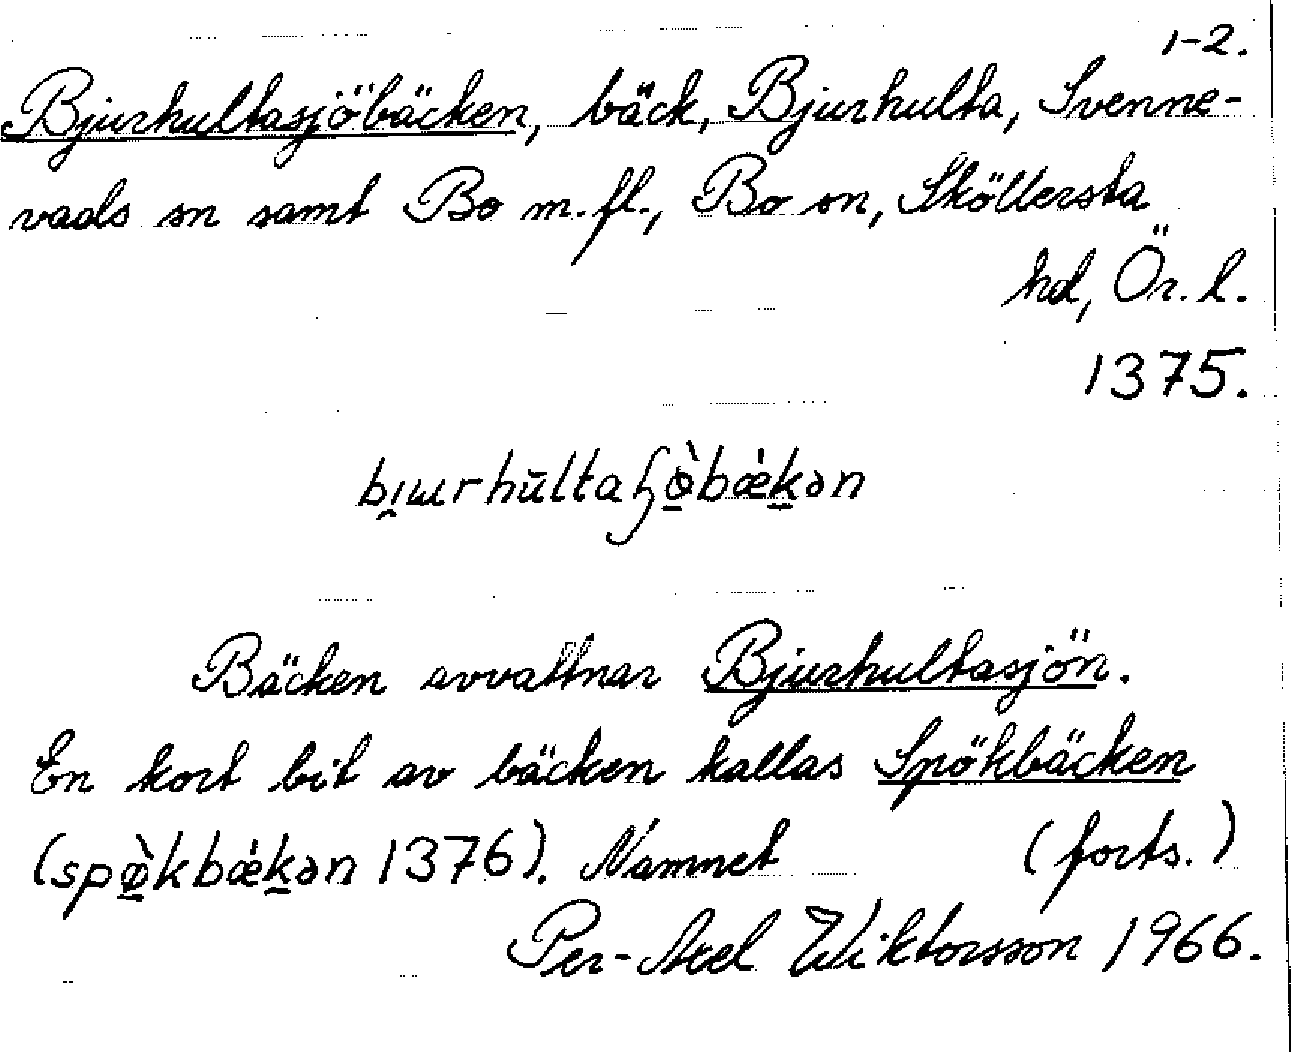 1-2.
Bjurhultasjöbäcken, bäck, Bjurhulta, Svenne-
vads sn samt Bo m.fl., Bo sn, Sköllersta
hd, Ör. l.
1375.
Bäcken avvattnar Bjurhultasjön.
En kort bit av bäcken kallas Spökbäcken
(spø̀kbæ̀kən 1376). Namnet (forts.)
Per-Axel Wiktorsson 1966.